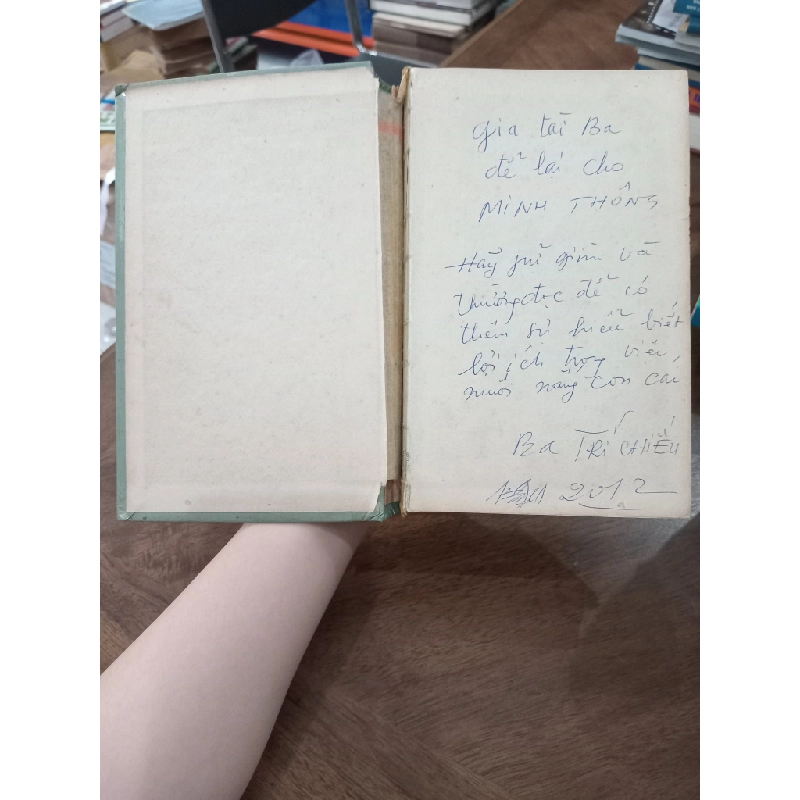 Gia tài Ba
để lại cho
MINH THÔNG
Hãy giữ gìn và
thường đọc để có
thêm sự hiểu biết
lợi ích trong việc
nuôi nấng con cái
Ba TRÍ CHIẾU
2012